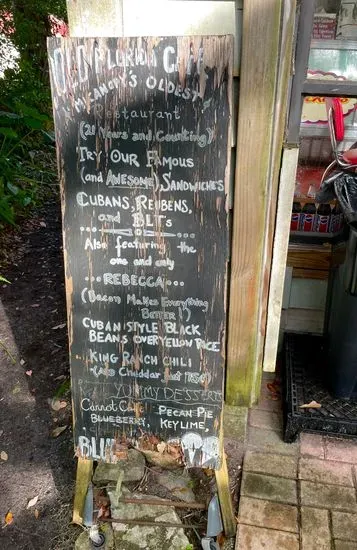 Old Florida Cafe
"Micanopy's Oldest"
Restaurant
(20 Years and Counting)
Try Our Famous
(and Awesome) Sandwiches
Cubans, Reubens,
and BLT's
Also featuring the
one and only
...REBECCA...
(Bacon Makes Everything
Better!)
Cuban Style Black
Beans over Yellow Rice
King Ranch Chili
YUMMY DESSERTS
Carrot Cake Pecan Pie
Blueberry, Key Lime,